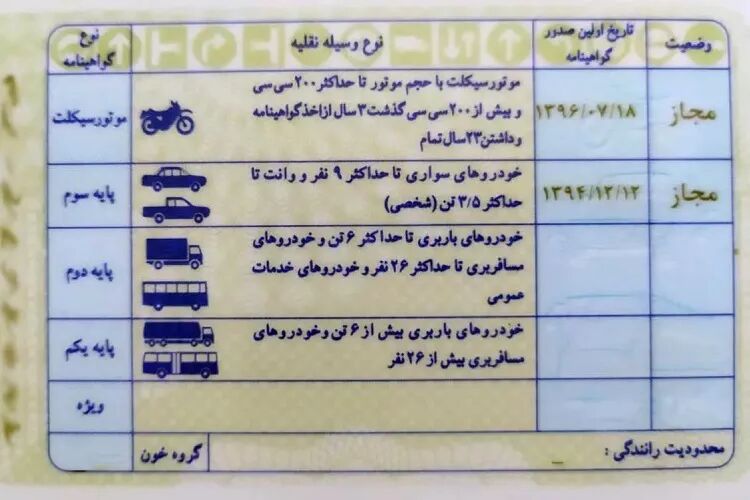 نوع گواهینامه
نوع وسیله نقلیه
تاریخ اولین صدور گواهینامه
وضعیت
موتورسیکلت
موتورسیکلت با حجم موتور تا حداکثر ۲۰۰ سی سی
و بیش از ۲۰۰ سی سی گذشت ۳ سال از اخذ گواهینامه
و داشتن ۲۳ سال تمام
۱۳۹۶/۰۷/۱۸
مجاز
پایه سوم
خودروهای سواری تا حداکثر ۹ نفر و وانت تا
حداکثر ۳/۵ تن (شخصی)
۱۳۹۴/۱۲/۱۲
مجاز
پایه دوم
خودروهای باربری تا حداکثر ۶ تن و خودروهای
مسافربری تا حداکثر ۲۶ نفر و خودروهای خدمات
عمومی
پایه یکم
خودروهای باربری بیش از ۶ تن و خودروهای
مسافربری بیش از ۲۶ نفر
ویژه
گروه خون
محدودیت رانندگی :